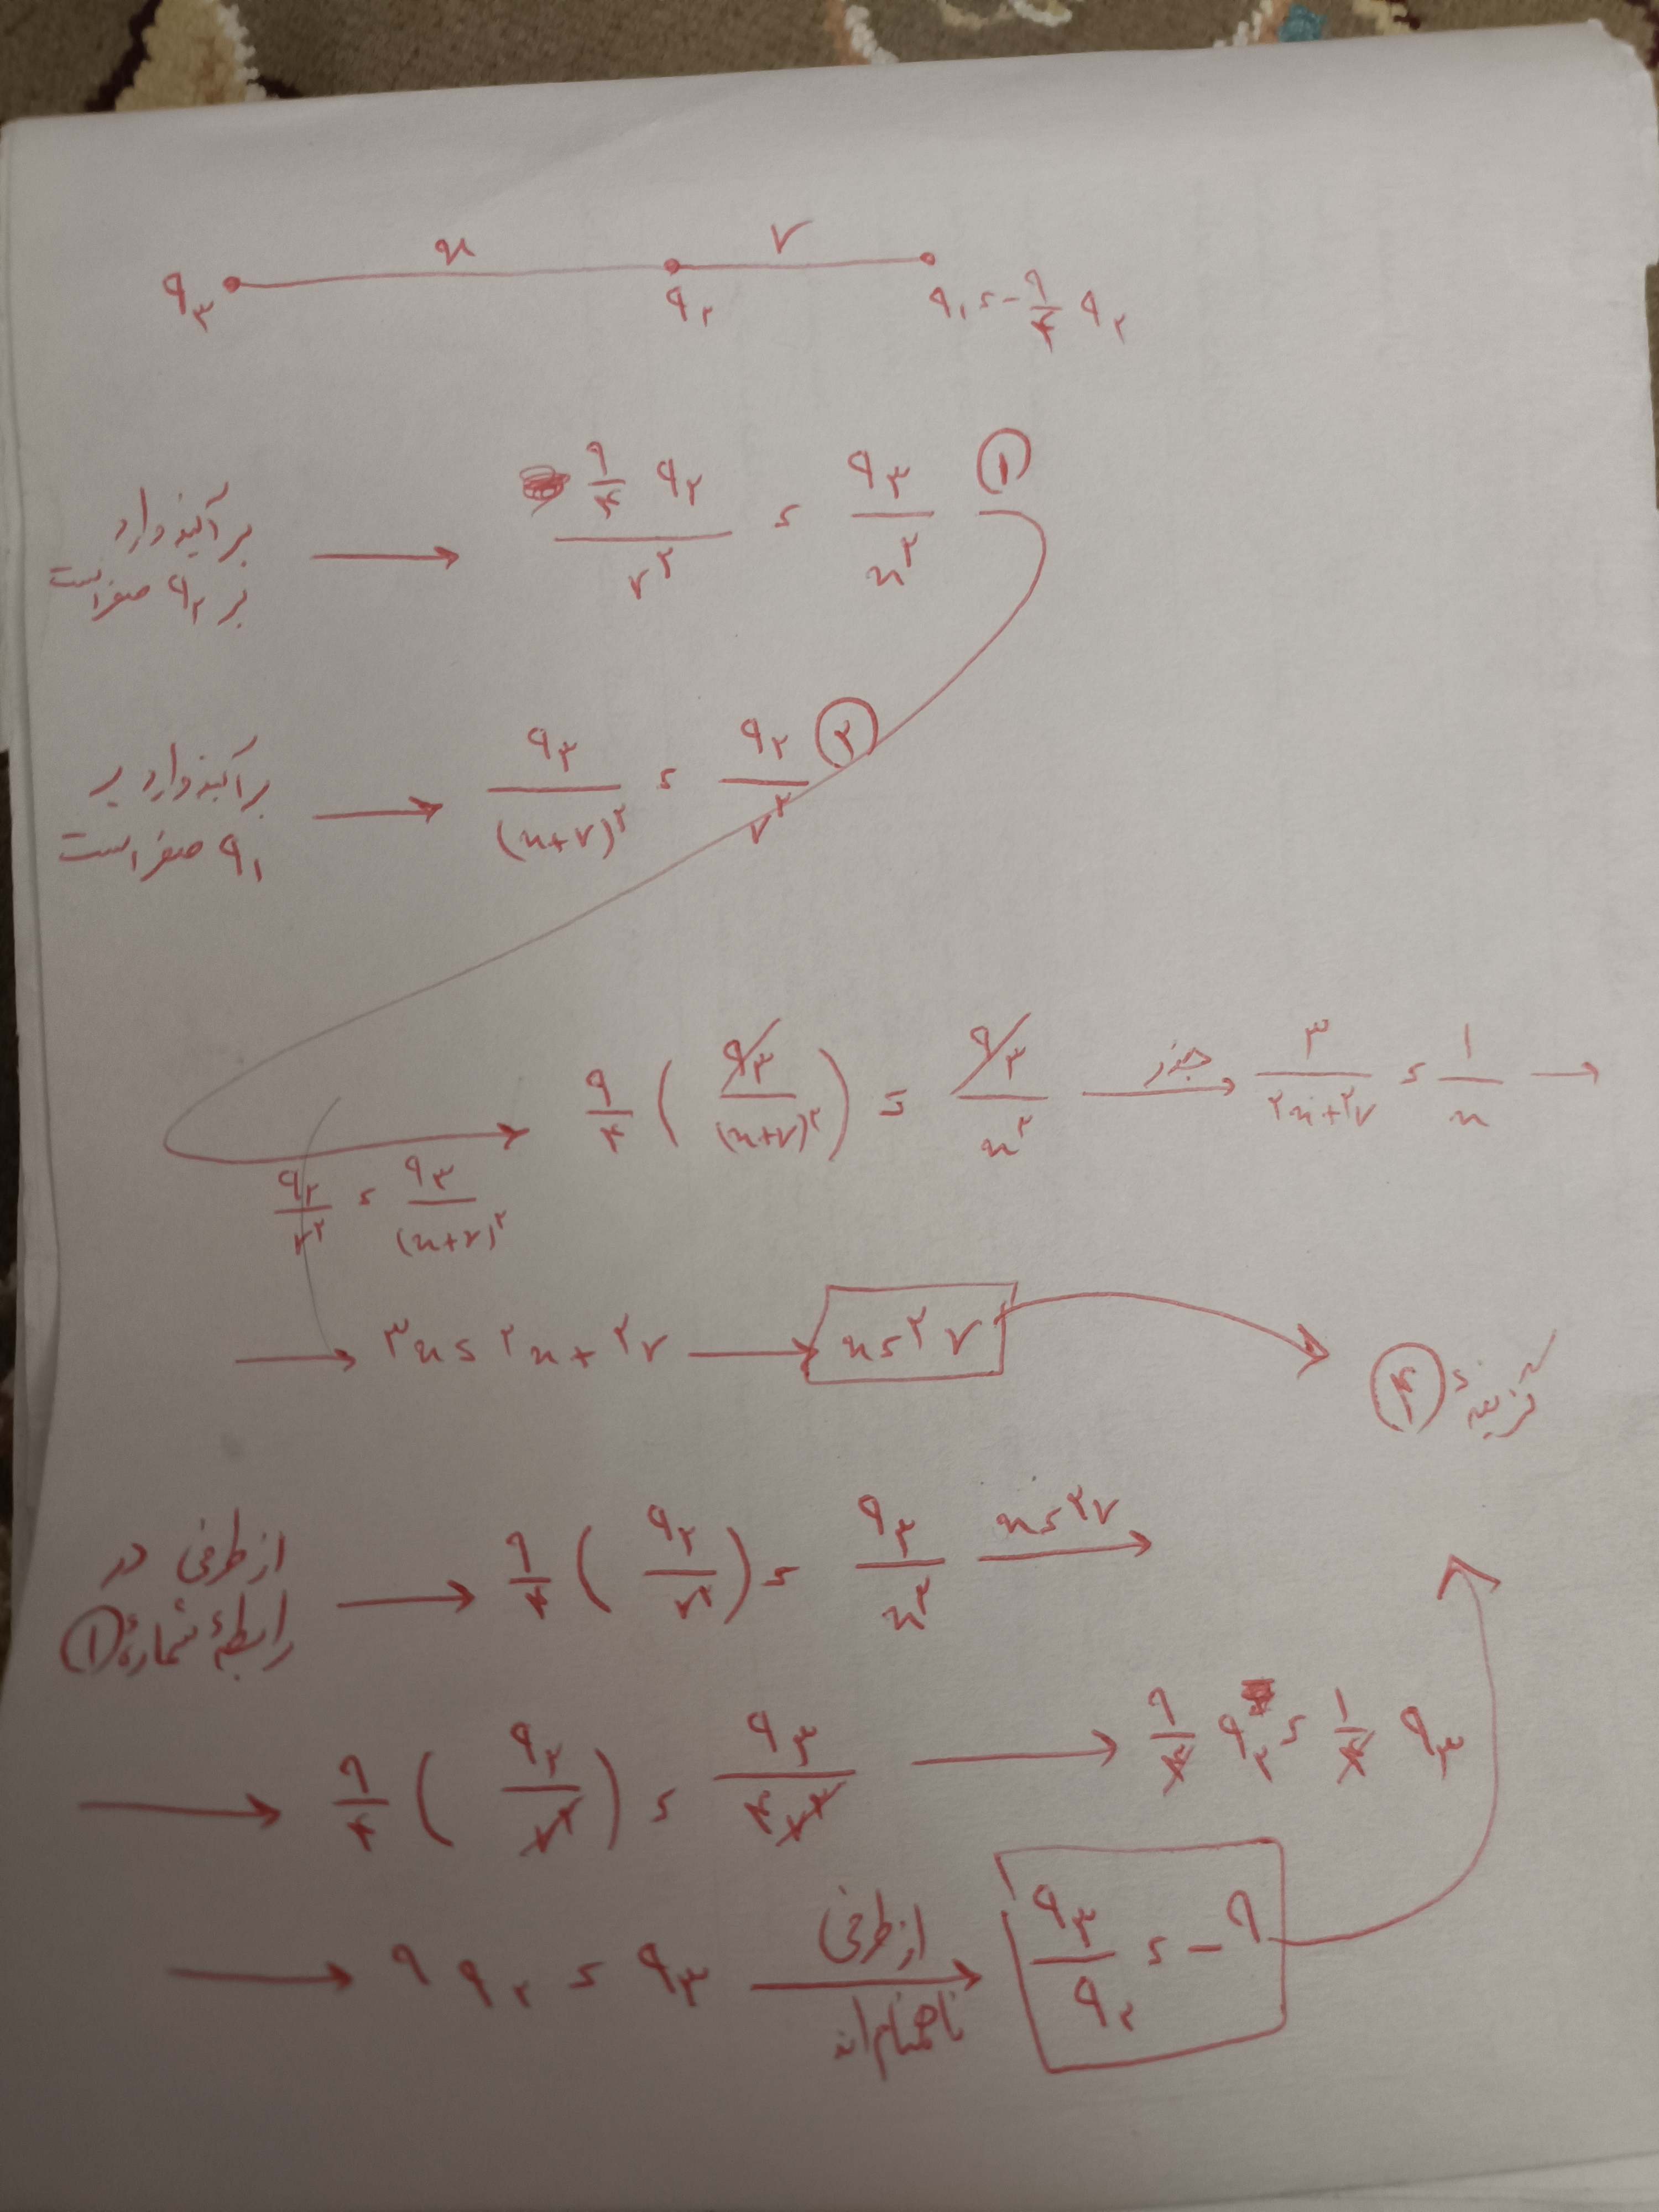 x r
q۳ q۲ q۱ = -۹/۴ q۲
برآیند وارد بر q۲ صفر است → (۹/۴ q۲)/r^۲ = q۳/x^۲ ①
برآیند وارد بر q۱ صفر است → q۳/(x+r)^۲ = q۲/r^۲ ②
q۲/r^۲ = q۳/(x+r)^۲ → ۹/۴ (q۳/(x+r)^۲) = q۳/x^۲ جذر → ۳/(۲x+۲r) = ۱/x →
→ ۳x = ۲x + ۲r → x = ۲r → گزینهٔ ④
از طرفی در رابطهٔ شمارهٔ ① → ۹/۴ (q۲/r^۲) = q۳/x^۲ x=۲r →
→ ۹/۴ (q۲/r^۲) = q۳/۴r^۲ → ۹/۴ q۲ = ۱/۴ q۳
→ ۹ q۲ = q۳ از طرفی ناهمنام اند → q۳/q۲ = -۹